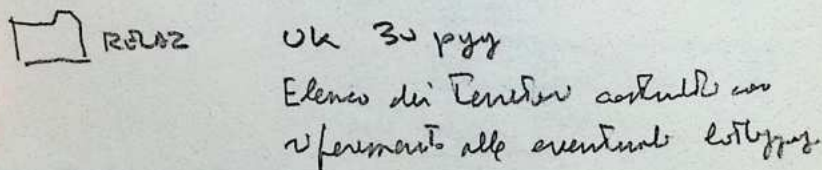 RELAZ UK 30 pgg
Elenco dei Territori costruiti con
riferimento alle eventuali